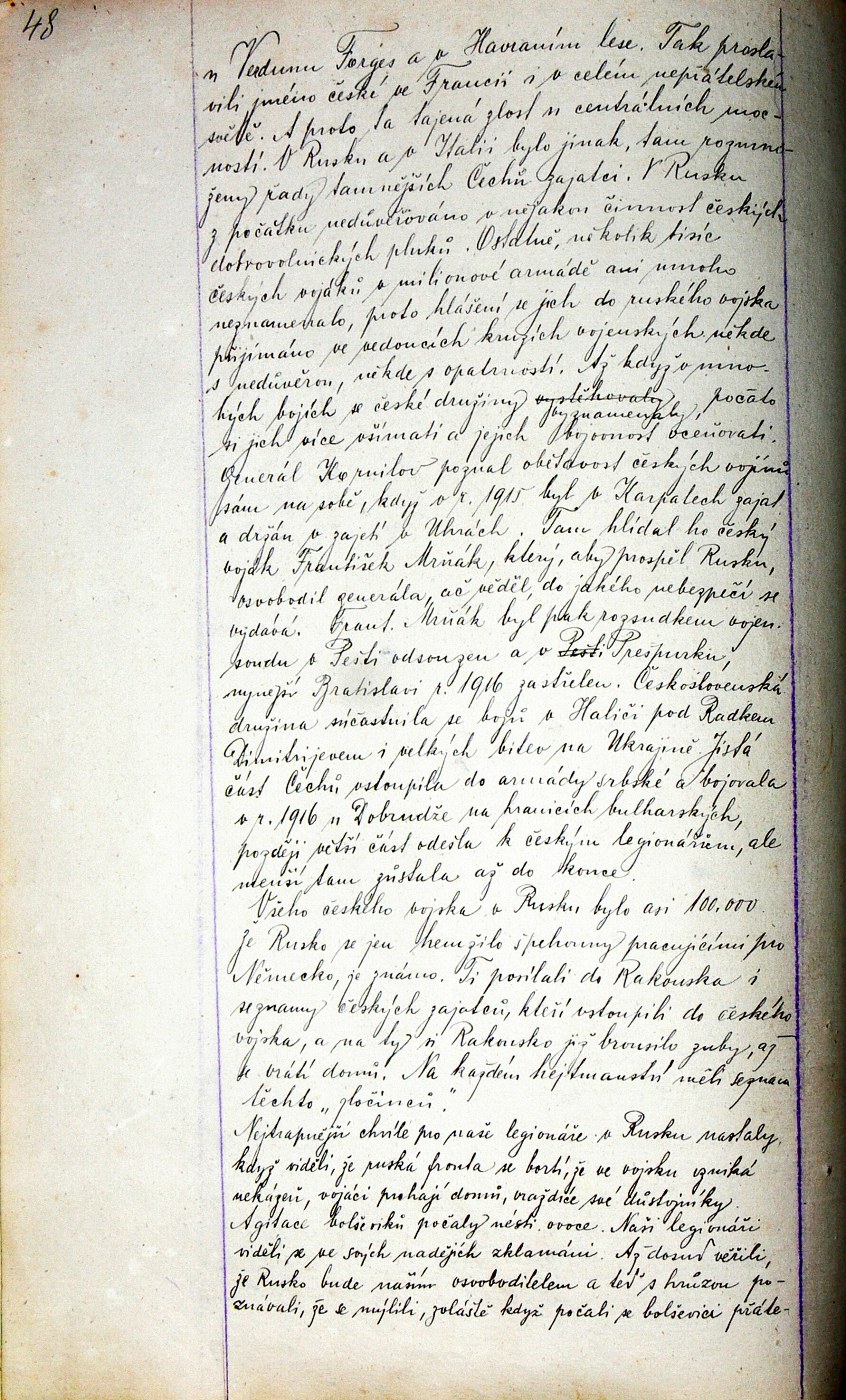 48
u Verdunu Forges a v Havraním lese. Tak prosla-
vili jméno české ve Francii i v celém nepřátelském
světě. A proto ta tajená zlost u centrálních moc-
ností. V Rusku a v Italii bylo jinak, tam rozmno-
ženy řady tamnějších Čechů zajatci. V Rusku
z počátku nedůvěřováno v nějakou činnost českých
dobrovolnických pluků. Ostatně, několik tisíc
českých vojáků v milionové armádě ani mnoho
neznamenalo, proto hlášení se jich do ruského vojska
přijímáno ve vedoucích kruzích vojenských někde
s nedůvěrou, někde s opatrností. Až když v mno-
hých bojích se české družiny vyznamenaly, počato
si jich více všímati a jejich bojovnost oceňovati.
Generál Kornilov poznal obětavost českých vojínů
sám na sobě, když v r. 1915 byl v Karpatech zajat
a držán v zajetí v Uhrách. Tam hlídal ho český
voják František Mrňák, který, aby prospěl Rusku,
osvobodil generála, ač věděl, do jakého nebezpečí se
vydává. Frant. Mrňák byl pak rozsudkem vojen.
soudu v Pešti odsouzen a v Pešti Prešpurku,
nynější Bratislavi r. 1916 zastřelen. Československá
družina súčastnila se bojů v Haliči pod Radkem
Dimitrijevem i velkých bitev na Ukrajině. Jistá
část Čechů vstoupila do armády srbské a bojovala
v r. 1916 u Dobrudže na hranicích bulharských,
později větší část odešla k českým legionářům, ale
menší tam zůstala až do konce.
Všeho českého vojska v Rusku bylo asi 100.000.
Že Rusko se jen hemžilo špehouny pracujícími pro
Německo, je známo. Ti posílali do Rakouska i
seznamy českých zajatců, kteří vstoupili do českého
vojska, a na ty si Rakousko již brousilo zuby, až
se vrátí domů. Na každém hejtmanství měli seznam
těchto „zločinců".
Nejtrapnější chvíle pro naše legionáře v Rusku nastaly,
když viděli, že ruská fronta se bortí, že ve vojsku vzniká
nekázeň, vojáci prchají domů, vraždíce své důstojníky.
Agitace bolševiků počaly nésti ovoce. Naši legionáři
viděli se ve svých nadějích zklamáni. Až dosud věřili,
že Rusko bude naším osvoboditelem a teď s hrůzou po-
znávali, že se mýlili, zvláště když počali se bolševici přáte-